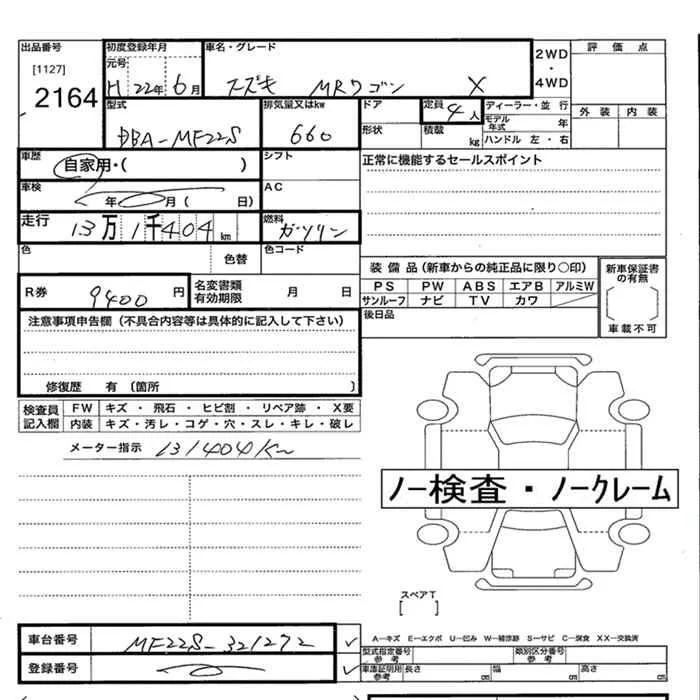 出品番号 初度登録年月 車名・グレード 2WD・4WD 評価点
[1127] 元号
2164 H 22年 6月 スズキ MRワゴン X
型式 排気量又はkw ドア 定員 4人 ディーラー・並行 外装 内装
DBA-MF22S 660 形状 積載 kg モデル年式 年
ハンドル 左・右
車歴 自家用・( ) シフト 正常に機能するセールスポイント
車検 年 月( 日) AC
走行 13万1千404km 燃料 ガソリン
色 色替 色コード
装備品(新車からの純正品に限り〇印) 新車保証書の有無
R券 9400円 名変書類有効期限 月 日 PS PW ABS エアB アルミW
サンルーフ ナビ TV カワ
後日品 車載不可
注意事項申告欄(不具合内容等は具体的に記入して下さい)
修復歴 有(箇所 )
検査員記入欄 FW キズ・飛石・ヒビ割・リペア跡・X要
内装 キズ・汚レ・コゲ・穴・スレ・キレ・破レ
メーター指示 131404km
ノー検査・ノークレーム
スペアT
[ ]
車台番号 MF22S-321272
A―キズ E―エクボ U―凹み W―補修跡 S―サビ C―腐食 XX―交換済
型式指定番号 参考 類別区分番号 参考
登録番号 車庫証明用 参考 長さ cm 幅 cm 高さ cm